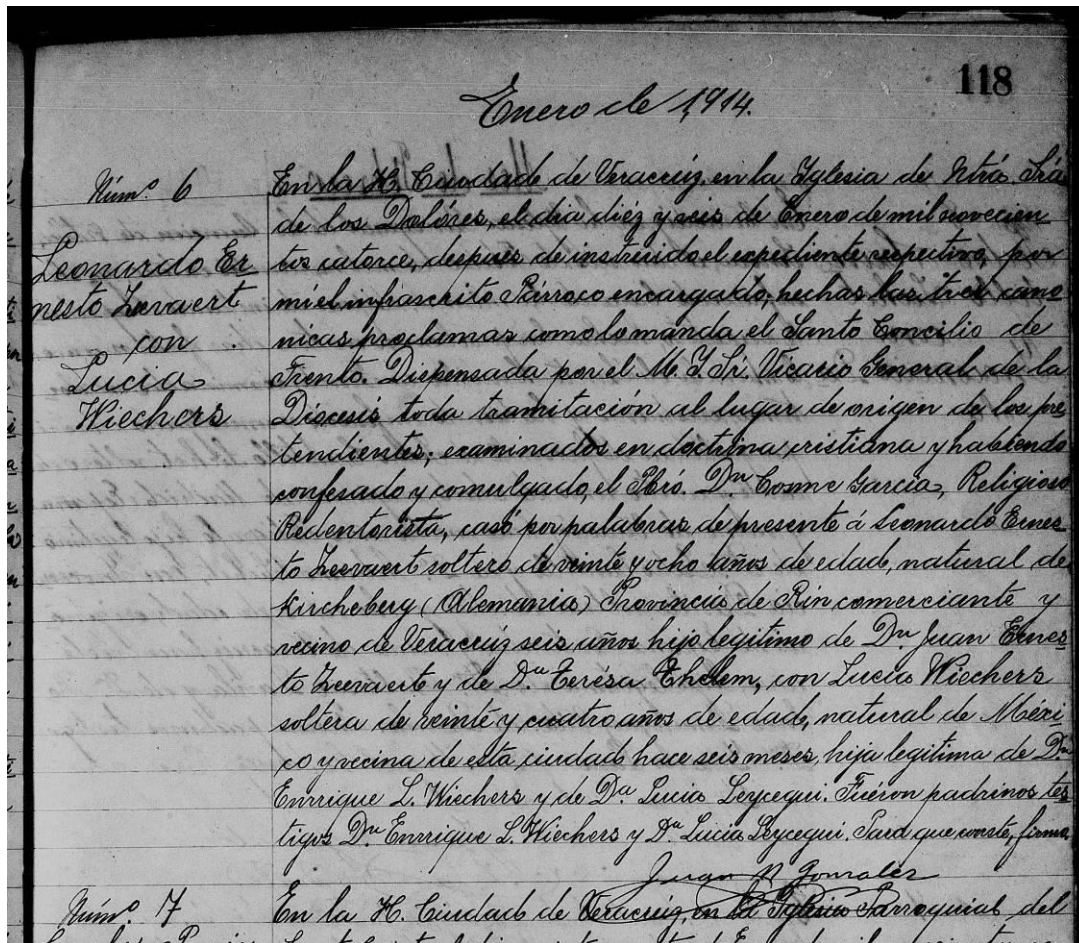 118
Enero de 1,914.
Núm.º 6
Leonardo Er
nesto Zevaert
con
Lucia
Wiechers
En la H. Ciudad de Veracrúz, en la Yglesia de Ntrá. Srá
de los Dolóres, el dia diéz y seis de Enero de mil novecien
tos catorce, despues de instruido el expediente respectivo, por
mí el infrascrito Párroco encargado, hechas las tres cano
nicas proclamas como lo manda el Santo Concilio de
Trento. Dispensada por el M. Y. Sr. Vicario General de la
Diócesis toda tramitación al lugar de origen de los pre
tendientes; examinados en doctrina cristiana y habiendo
confesado y comulgado, el Pbró. Dn. Cosme Garcia, Religioso
Redentorista, casó por palabras de presente á Leonardo Ernes
to Zeevaert soltero de veinte y ocho años de edad, natural de
Kircheberg (Alemania) Provincia de Rin comerciante y
vecino de Veracrúz seis años hijo legitimo de Dn. Juan Ernes
to Zeevaert y de Da. Terésa Thelem, con Lucia Wiechers
soltera de veinte y cuatro años de edad, natural de Méxi
co y vecina de esta ciudad hace seis meses, hija legitima de Dn.
Enrrique L. Wiechers y de Da. Lucia Leycegui. Fuéron padrinos tes
tigos Dn. Enrrique L. Wiechers y Da. Lucia Leycegui. Para que conste, firmo.
Juan N Gonzalez
Núm.º 7
En la H. Ciudad de Veracrúz, en la Yglesia Parroquial del